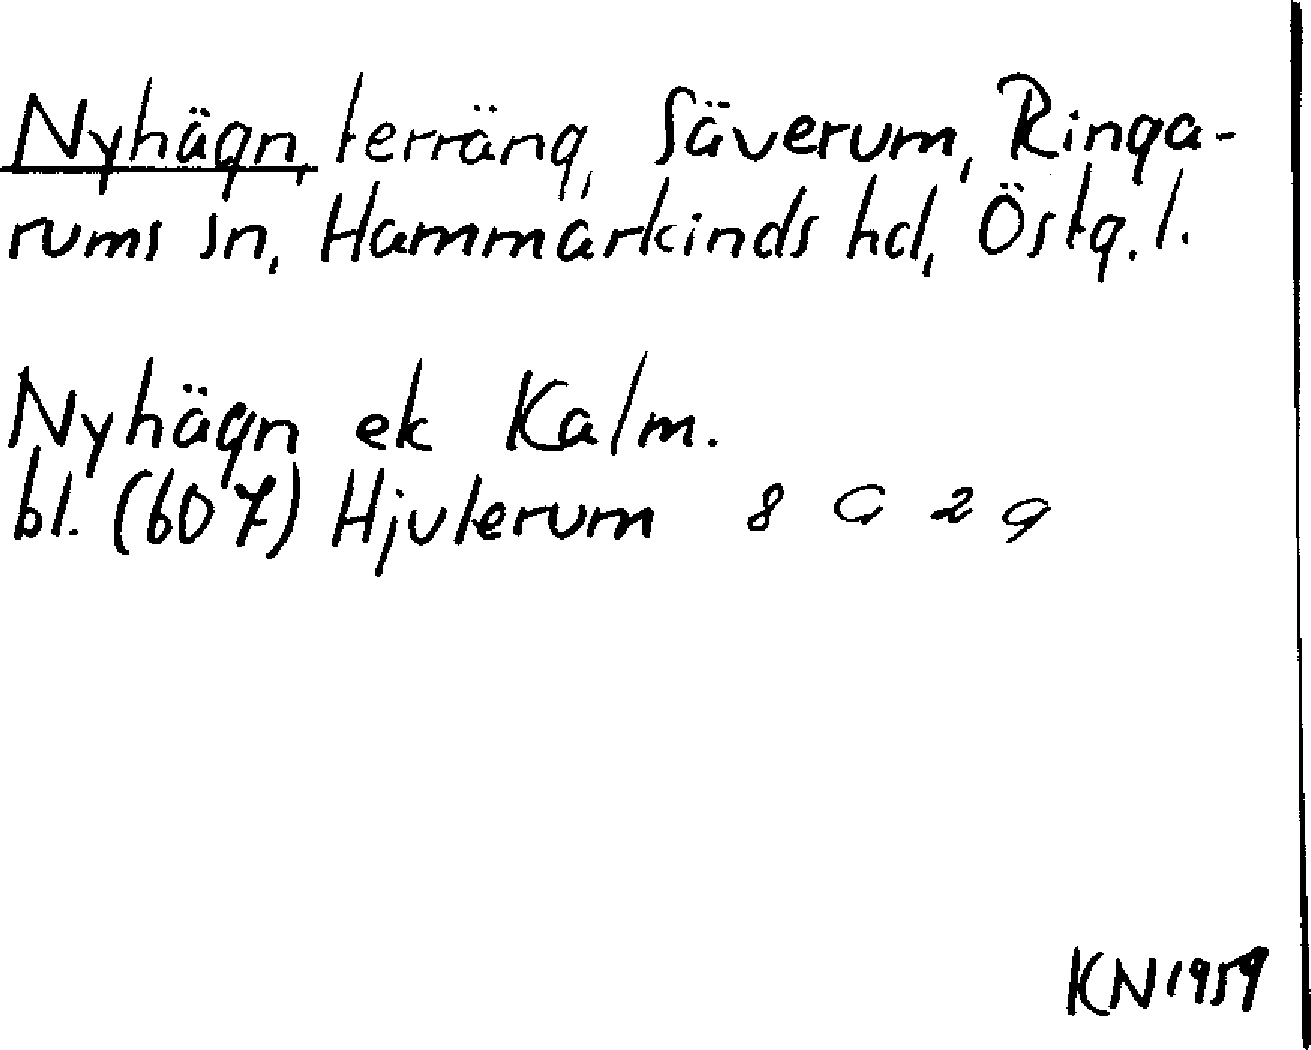 Nyhägn, terräng, Säverum, Ringa-
rums sn, Hammarkinds hd, Östg. l.
Nyhägn ek Kalm.
bl. (607) Hjulerum 8 G 2 g
KN 1959